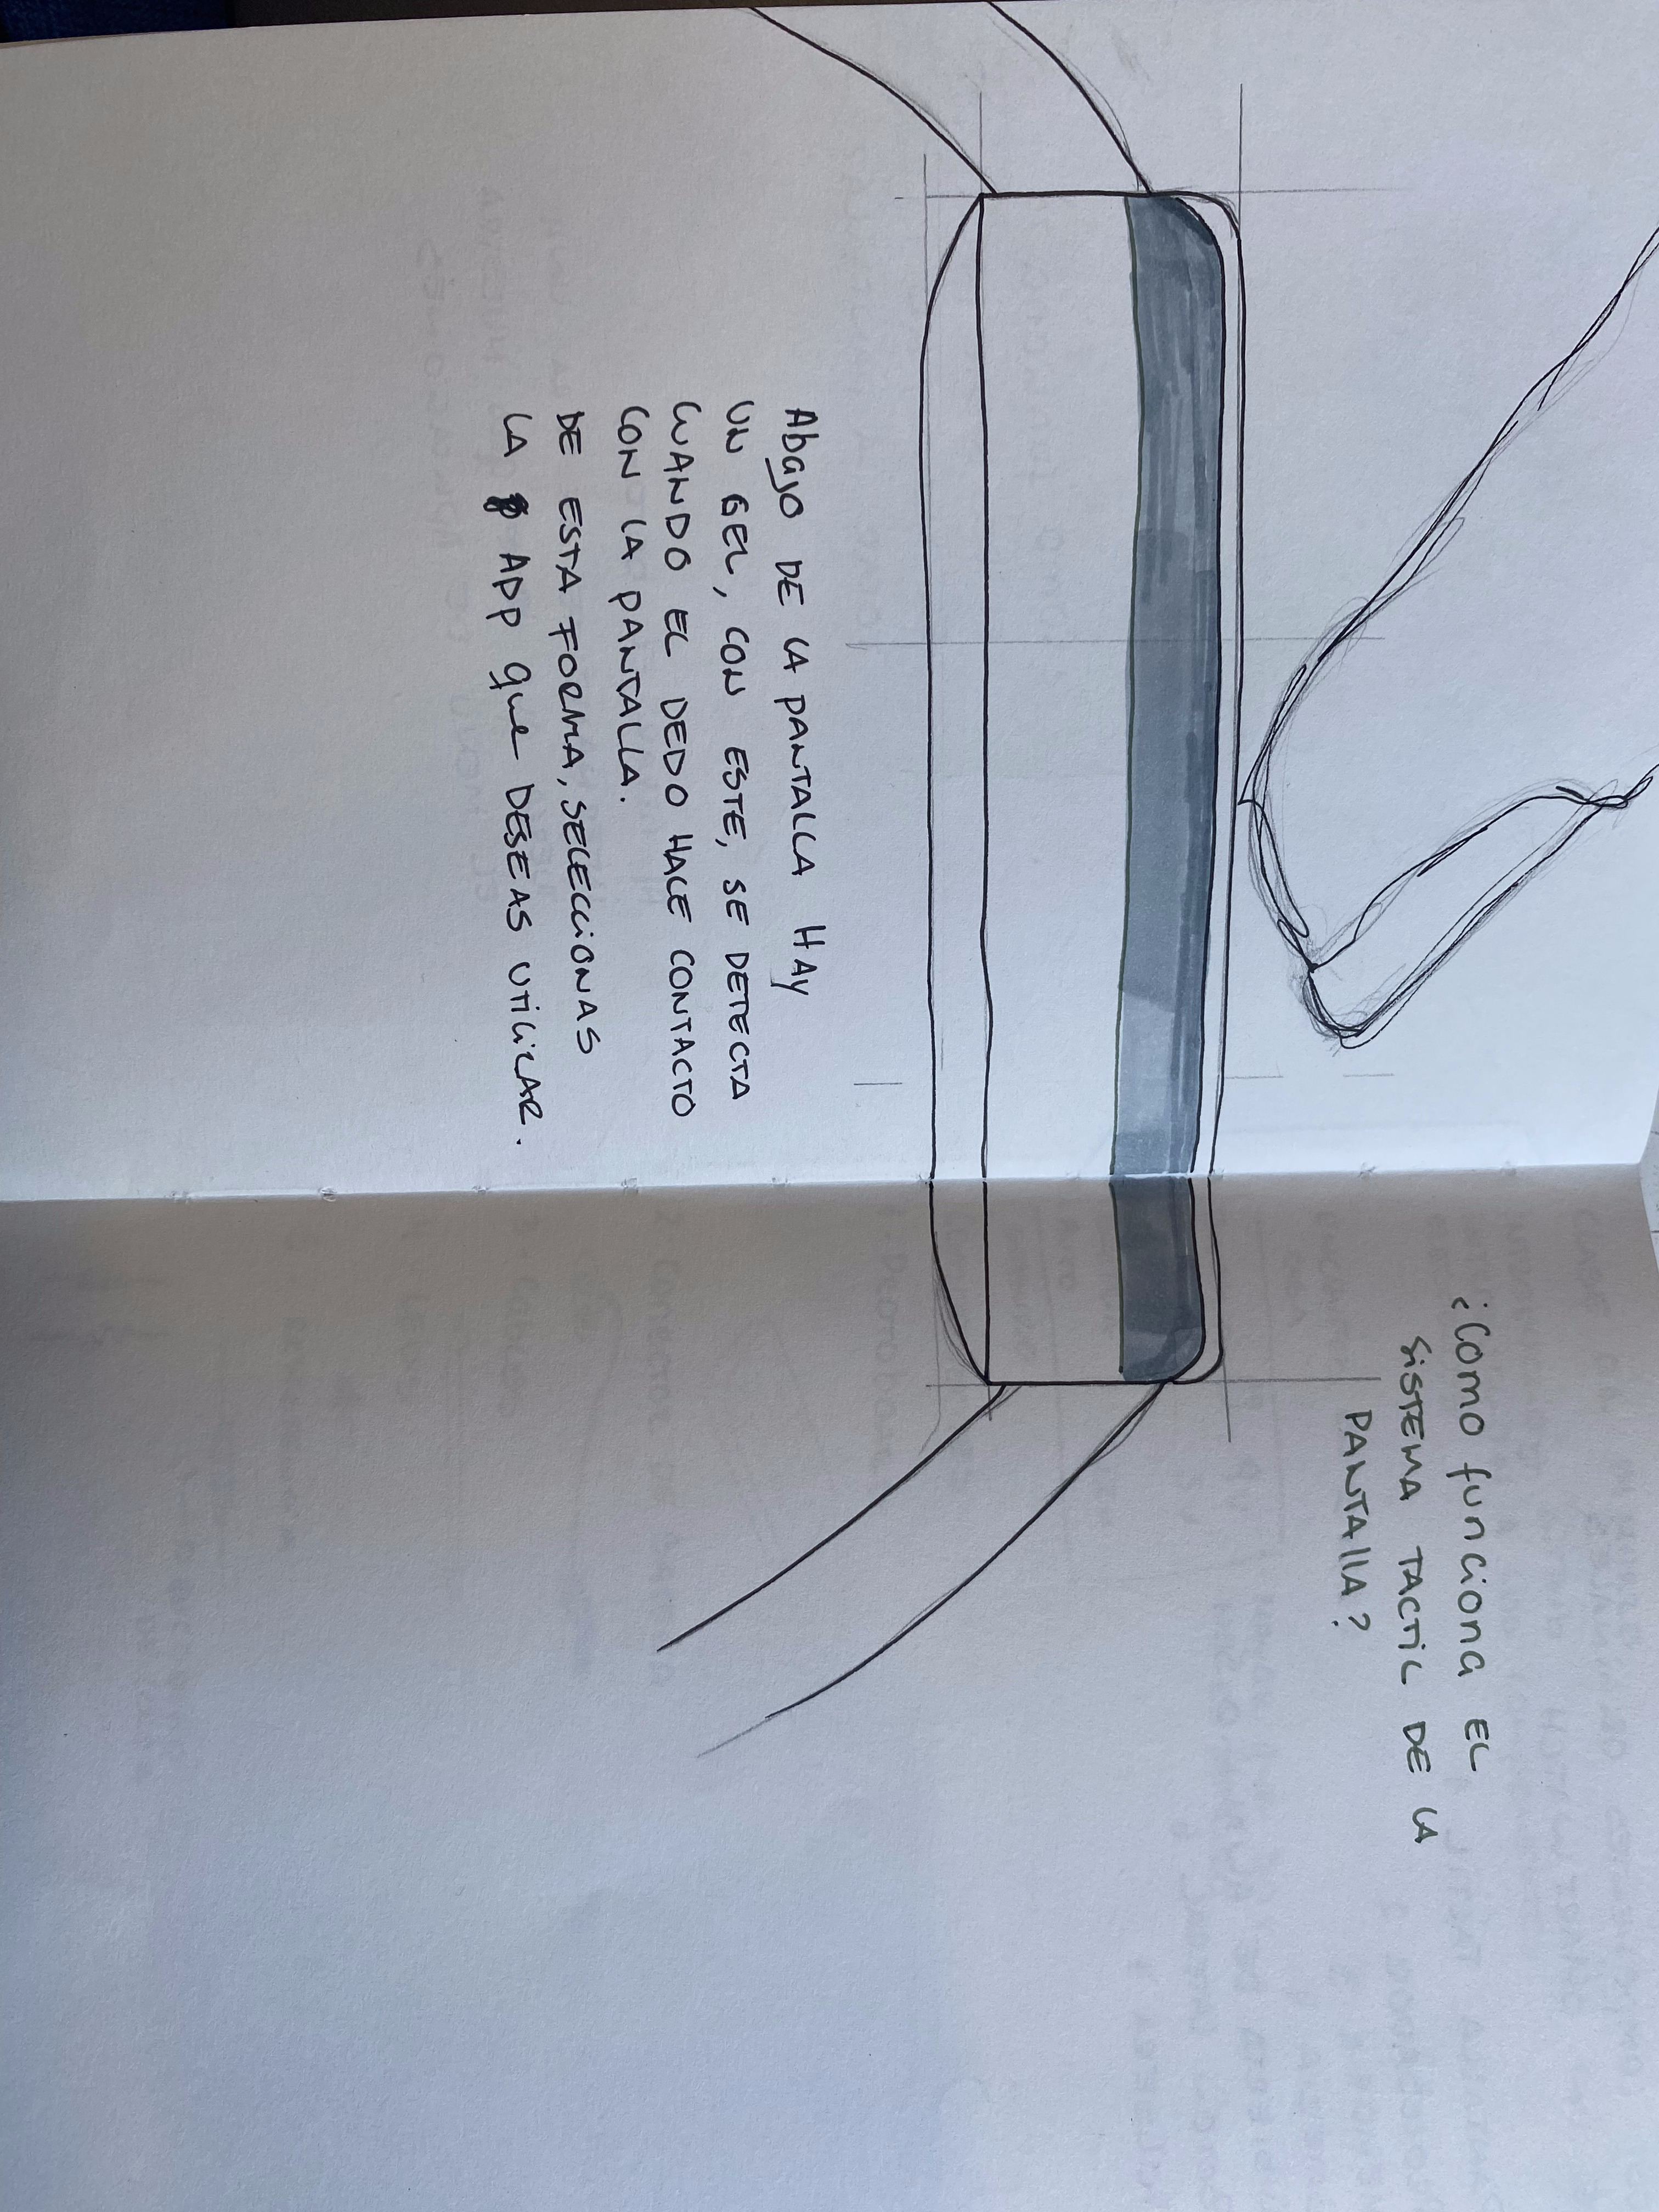 ¿Como funciona EL
SISTEMA TACTIL DE LA
PANTAllA?
AbaJO DE LA PANTALLA HAy
UN GEL, CON ESTE, SE DETECTA
CUANDO EL DEDO HACE CONTACTO
CON LA PANTALLA.
DE ESTA FORMA, SELECCIONAS
LA APP que DESEAS UTILIZAR.